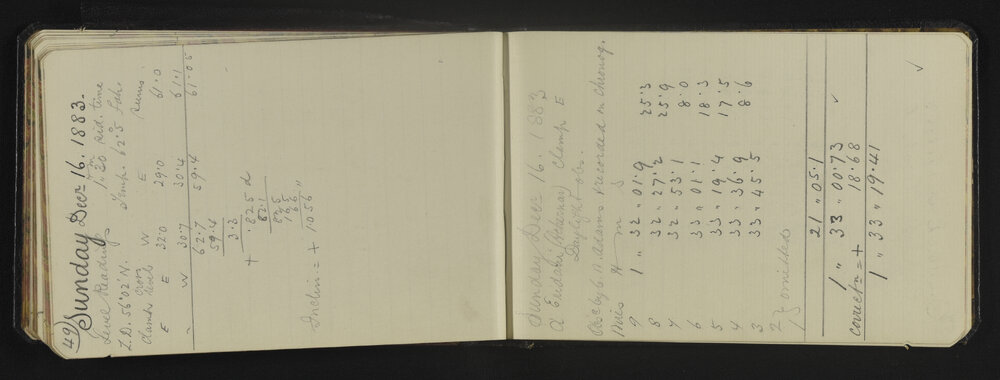 (49) Sunday Decr 16. 1883.
Level Readings 1h 30m sid. time
Z.D. 56° 02' N. " Temp. 62°.5 Fah.
Clamp Cross level W E Sums
E E 32.0 29.0 61.0
" W 30.7 30.4 61.1
62.7 59.4 61.05
59.4
+ 3.3
.825 d
Inclin = + 1056 "
Sunday Decr 16. 1883
α Eridani (Achernar) Clamp E
Daylight obs.
Obs by Adams & recorded on Chronog.
Wires H m s
9 1 " 32 " 01.9 25.3
8 32 " 27.2 25.9
7 32 " 53.1 8.0
6 33 " 01.1 18.3
5 33 " 19.4 17.5
4 33 " 36.9 8.6
3 33 " 45.5
2 } omitted
1
21 " 05.1
1 " 33 " 00.73 ✓
correctn = + 18.68
1 " 33 " 19.41
✓